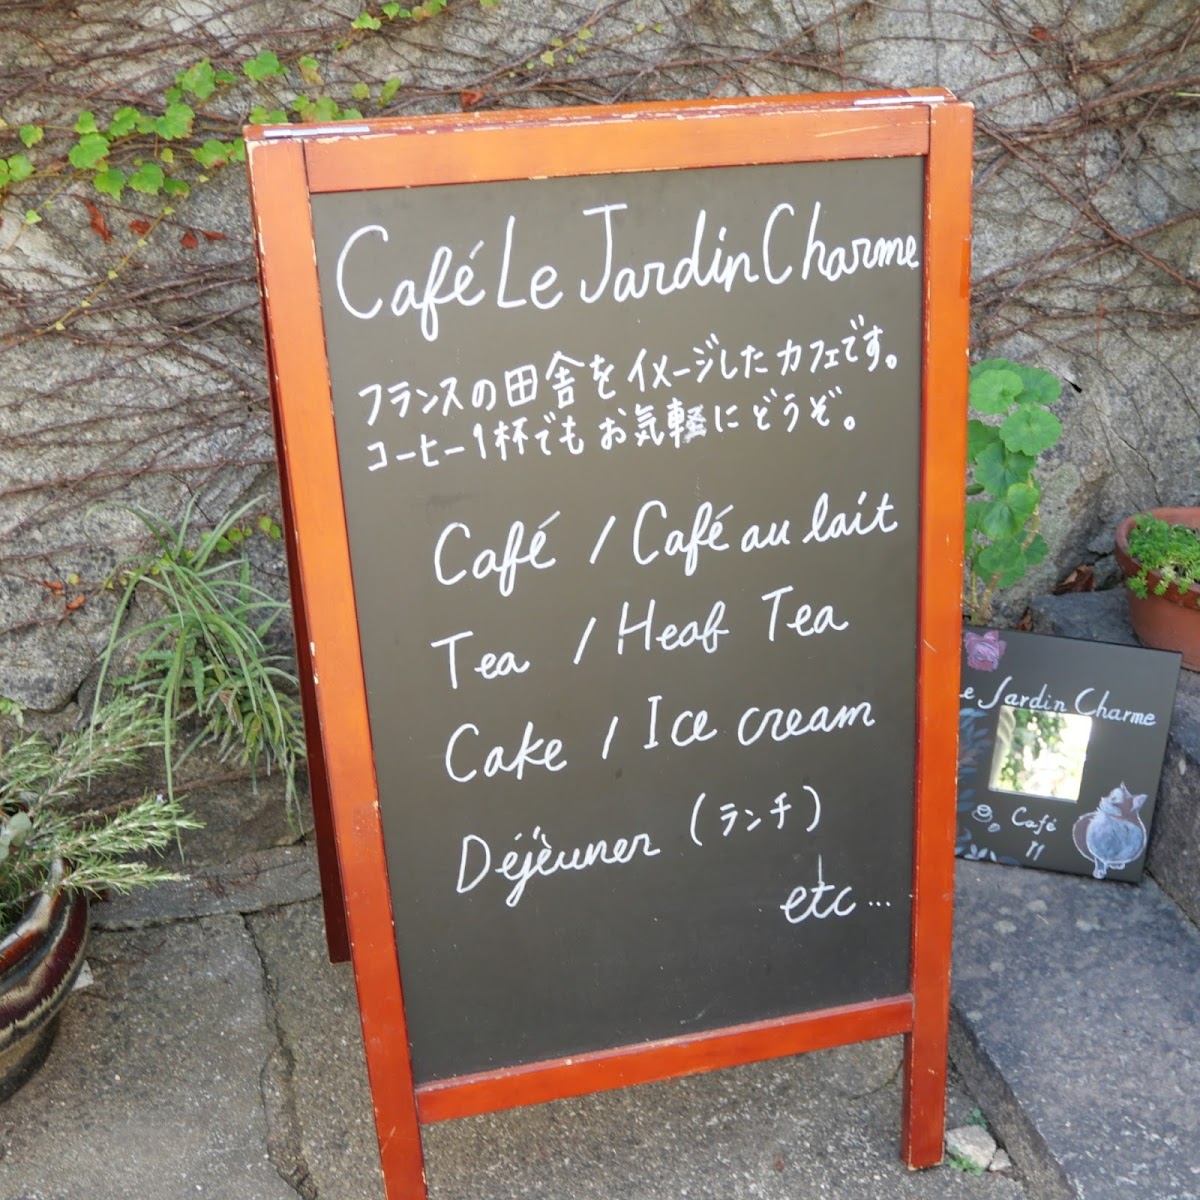 Café Le Jardin Charme
フランスの田舎をイメージしたカフェです。
コーヒー1杯でもお気軽にどうぞ。
Café / Café au lait
Tea / Heaf Tea
Cake / Ice cream
Déjèuner (ランチ)
etc...
Le Jardin Charme
Café